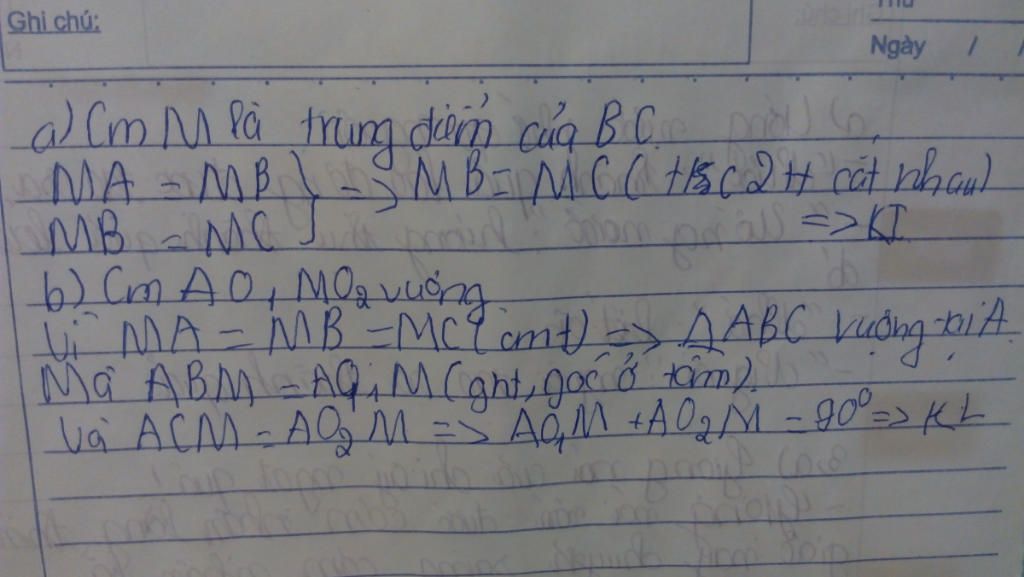 Ghi chú:
Thứ
Ngày / /
a) Cm M là trung điểm của BC.
MA = MB } => MB = MC ( cắt nhau)
MB = MC => KL
b) Cm AO1MO2 vuông
Vì MA = MB = MC (cmt) => ΔABC vuông tại A.
Mà ABM = AO1M (gnt, góc ở tâm).
Và ACM = AO2M => AO1M + AO2M = 90° => KL